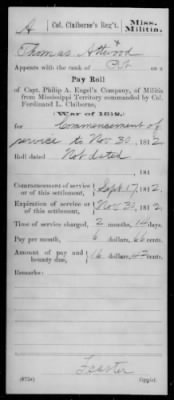 A
Col. Claiborne's Reg't.
Miss.
Militia.
Thomas Attwood
Appears with the rank of Pvt on
Pay Roll
of Capt. Philip A. Engel's Company, of Militia
from Mississippi Territory commanded by Col.
Ferdinand L. Claiborne,
(War of 1812,)
for Commencement of
service to Nov 30, 1812
Roll dated Not dated
, 181
Commencement of service
or of this settlement, Sept 17, 1812
Expiration of service or
of this settlement, Nov 30, 1812
Time of service charged, 2 months, 14 days.
Pay per month, 6 dollars, 66 cents.
Amount of pay and
bounty due, 16 dollars, 43 cents.
Remarks: